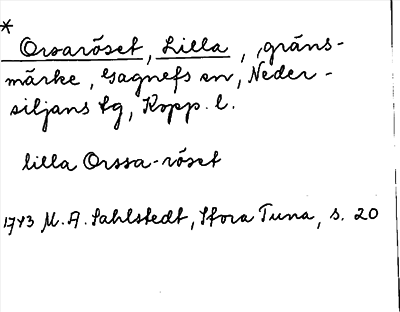 *
Orsaröset, Lilla, gräns-
märke, Gagnefs sn, Neder-
siljans tg, Kopp. l.
lilla Orssa-röset
1743 M. A. Sahlstedt, Stora Tuna, s. 20